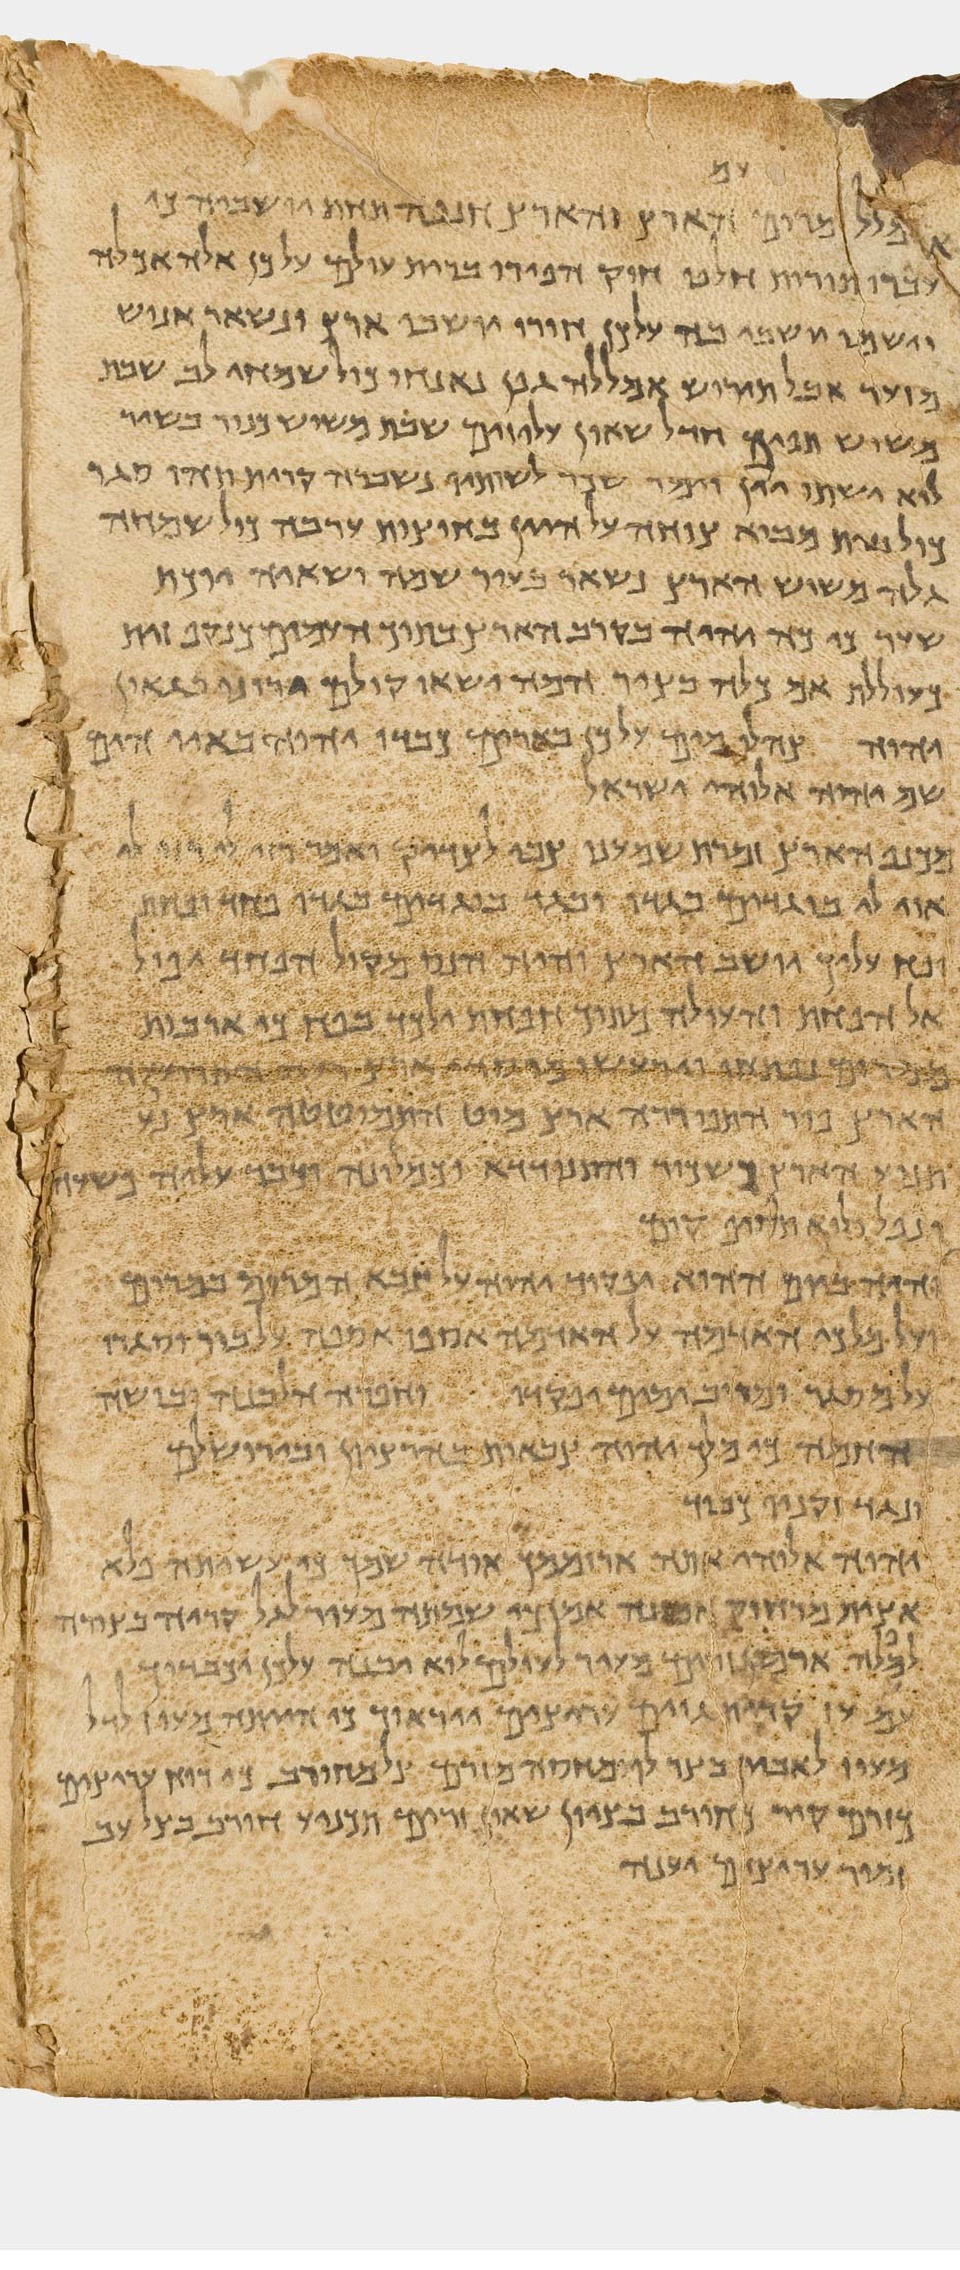 עם
אמלל מרום הארץ והארץ חנפה תחת יושביה כי
עברו תורות חלפו חוק הפירו ברית עולם על כן אלה אכלה
ויאשמו יושבי בה על כן חורו יושבי ארץ ונשאר אנוש
מזער אבל תירוש אמללה גפן נאנחו כול שמחי לב שבת
משוש תפים חדל שאון עליזים שבת משוש כנור בשיר
לוא ישתו יין וימר שכר לשותיו נשברה קרית תוהו סגר
כול בית מבוא צוחה על היין בחוצות ערבה כול שמחה
גלה משוש הארץ נשאר בעיר שמה ושאיה יוכת
שער כי כה יהיה בקרב הארץ בתוך העמים כנקף זית
כעוללת אם כלה בציר המה ישאו קולם וירונו בגאון
יהוה צהלו מים על כן באורים כבדו יהוה באיי הים
שם יהוה אלוהי ישראל
מכנף הארץ זמרת שמענו צבי לצדיק ואמר רזי לי רזי לי
אוי לי בוגדים בגדו ובגד בוגדים בגדו פחד ופחת
ופח עליך יושב הארץ והיה הנס מקול הפחד יפול
אל הפחת והעולה מתוך הפחת ילכד בפח כי ארבות
ממרום נפתחו וירעשו מוסדי ארץ התרועעה
הארץ פור התפוררה ארץ מוט התמוטטה ארץ נע
תנוע הארץ כשכור והתנודדא כמלונה וכבד עליה פשעה
ונפל ולוא תוסיף קום
והיה ביום ההוא יפקוד יהוה על צבא המרום במרום
ועל מלכי האדמה על האדמה אספו אספה על בור וסגרו
על מסגר ומרוב ימים יפקדו וחפרה הלבנה ובושה
החמה כי מלך יהוה צבאות בהר ציון ובירושלים
ונגד זקניו כבוד
יהוה אלוהי אתה ארוממך אודה שמך כי עשיתה פלא
אצית מרחוק אמונה אמן כי שמתה מעיר לגל קריה בצורה
למפלה ארמון זרים מעיר לעולם לוא יבנה על כן יכבדוך
עם עז קרית גוים עריצים ייראוך כי הייתה מעוז לדל
מעוז לאביון בצר לו מחסה מזרם צל מחורב כי רוח עריצים
כזרם קיר כחורב בציון שאון זרים תכניע חורב בצל עב
זמיר עריצים יענה